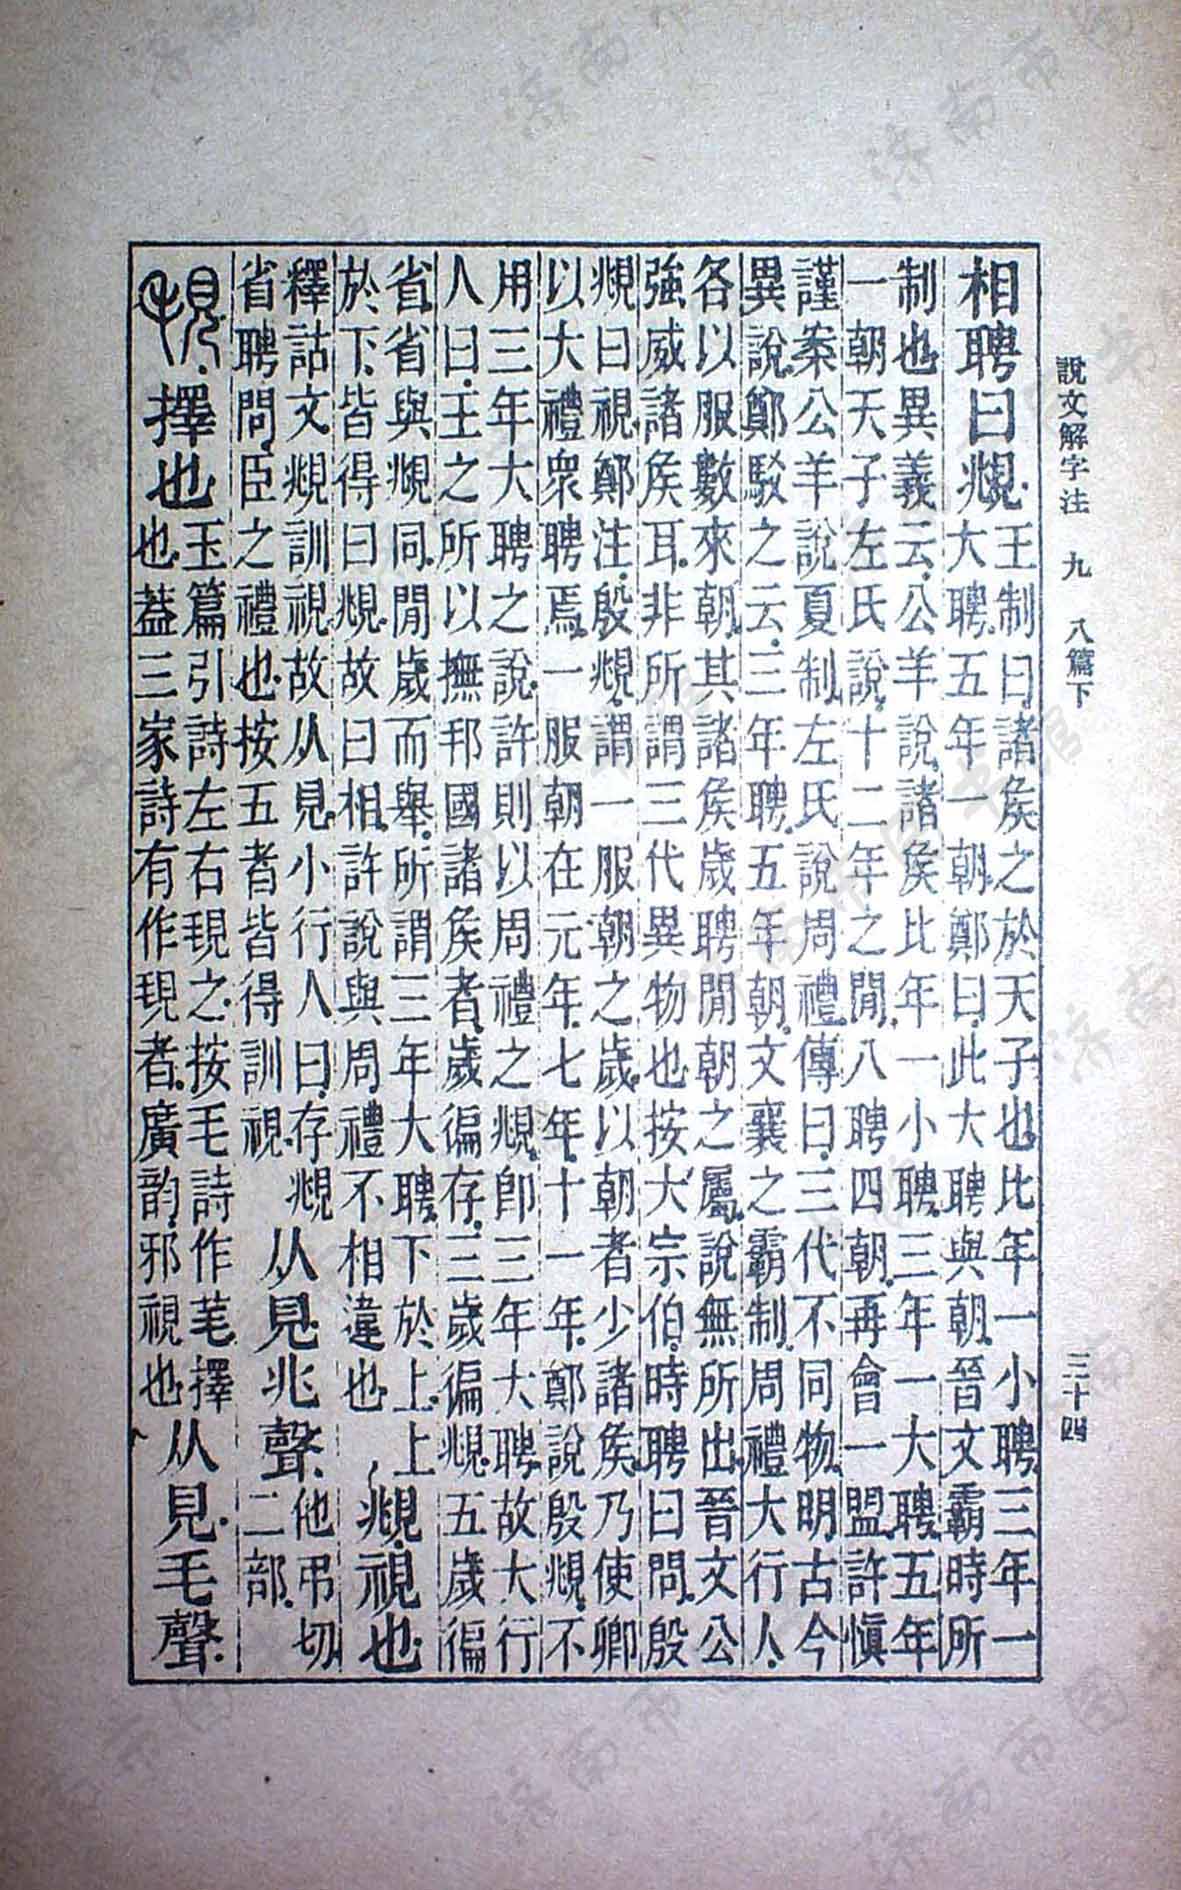 說文解字注 九 八篇下 三十四
相聘曰覜.
王制曰.諸矦之於天子也比年一小聘.三年一
大聘.五年一朝.鄭曰.此大聘與朝.晉文霸時所
制也異義云.公羊說.諸矦比年一小聘.三年一大聘.五年
一朝天子.左氏說.十二年之閒.八聘四朝.再會一盟.許愼
謹案公羊說夏制.左氏說周禮.傳曰.三代不同物.明古今
異說.鄭駁之云.三年聘.五年朝.文襄之霸制.周禮大行人.
各以服數來朝.其諸矦歲聘閒朝之屬.說無所出.晉文公
強威諸矦耳.非所謂三代異物也按大宗伯.時聘曰問.殷
覜曰視.鄭注.殷覜.謂一服朝之歲.以朝者少.諸矦乃使卿
以大禮衆聘焉.一服朝在元年.七年.十一年.鄭說殷覜不
用三年大聘之說.許則以周禮之覜卽三年大聘.故大行
人曰.王之所以撫邦國諸矦者.歲徧存.三歲徧覜.五歲徧
省.省與覜同.閒歲而舉.所謂三年大聘.下於上.上
於下.皆得曰覜.故曰相.許說與周禮不相違也
覜.視也.
釋詁文覜訓視.故从見.小行人曰.存覜
省聘問.臣之禮也.按五者皆得訓視.
从見.兆聲.
他弔切
二部.
覒.擇也
玉篇引詩左右覒之.按毛詩作芼.擇
也.葢三家詩有作覒者.廣韵.邪視也
从見.毛聲.